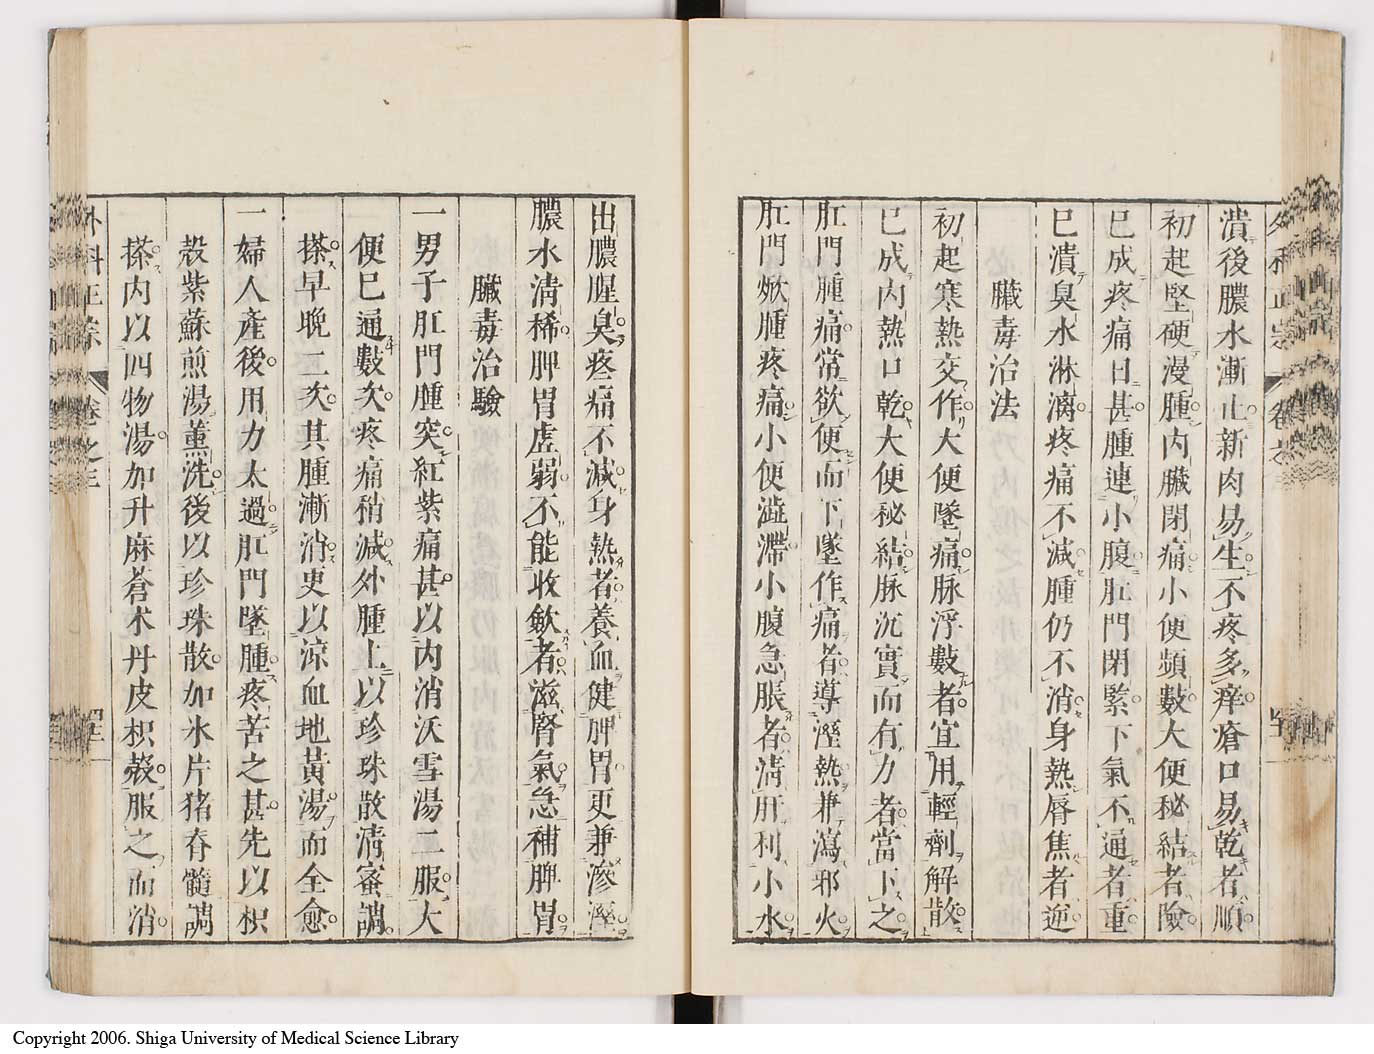 潰後膿水漸止新肉易生不疼多痒瘡口易乾者順
初起堅硬漫腫内臓閉痛小便頻數大便秘結者險
已成疼痛日甚腫連小腹肛門閉緊下氣不通者重
已潰臭水淋漓疼痛不減腫仍不消身熱唇焦者逆
臓毒治法
初起寒熱交作大便墜痛脉浮數者宜用輕劑解散
已成内熱口乾大便秘結脉沉實而有力者當下之
肛門腫痛常欲便而下墜作痛者導溼熱兼瀉邪火
肛門焮腫疼痛小便澁滯小腹急脹者清肝利小水
出膿腥臭疼痛不減身熱者養血健脾胃更兼滲溼
膿水清稀脾胃虚弱不能收歛者滋腎氣急補脾胃
臓毒治驗
一男子肛門腫突紅紫痛甚以内消沃雪湯二服大
便已通數次疼痛稍減外腫上以珍珠散清蜜調
搽早晩二次其腫漸消吏以涼血地黄湯而全愈
一婦人産後用力太過肛門墜腫疼苦之甚先以枳
殻紫蘇煎湯薫洗後以珍珠散加氷片猪脊髓調
搽内以四物湯加升麻蒼术丹皮枳殻服之而消
外科正宗 卷之三
Copyright 2006. Shiga University of Medical Science Library